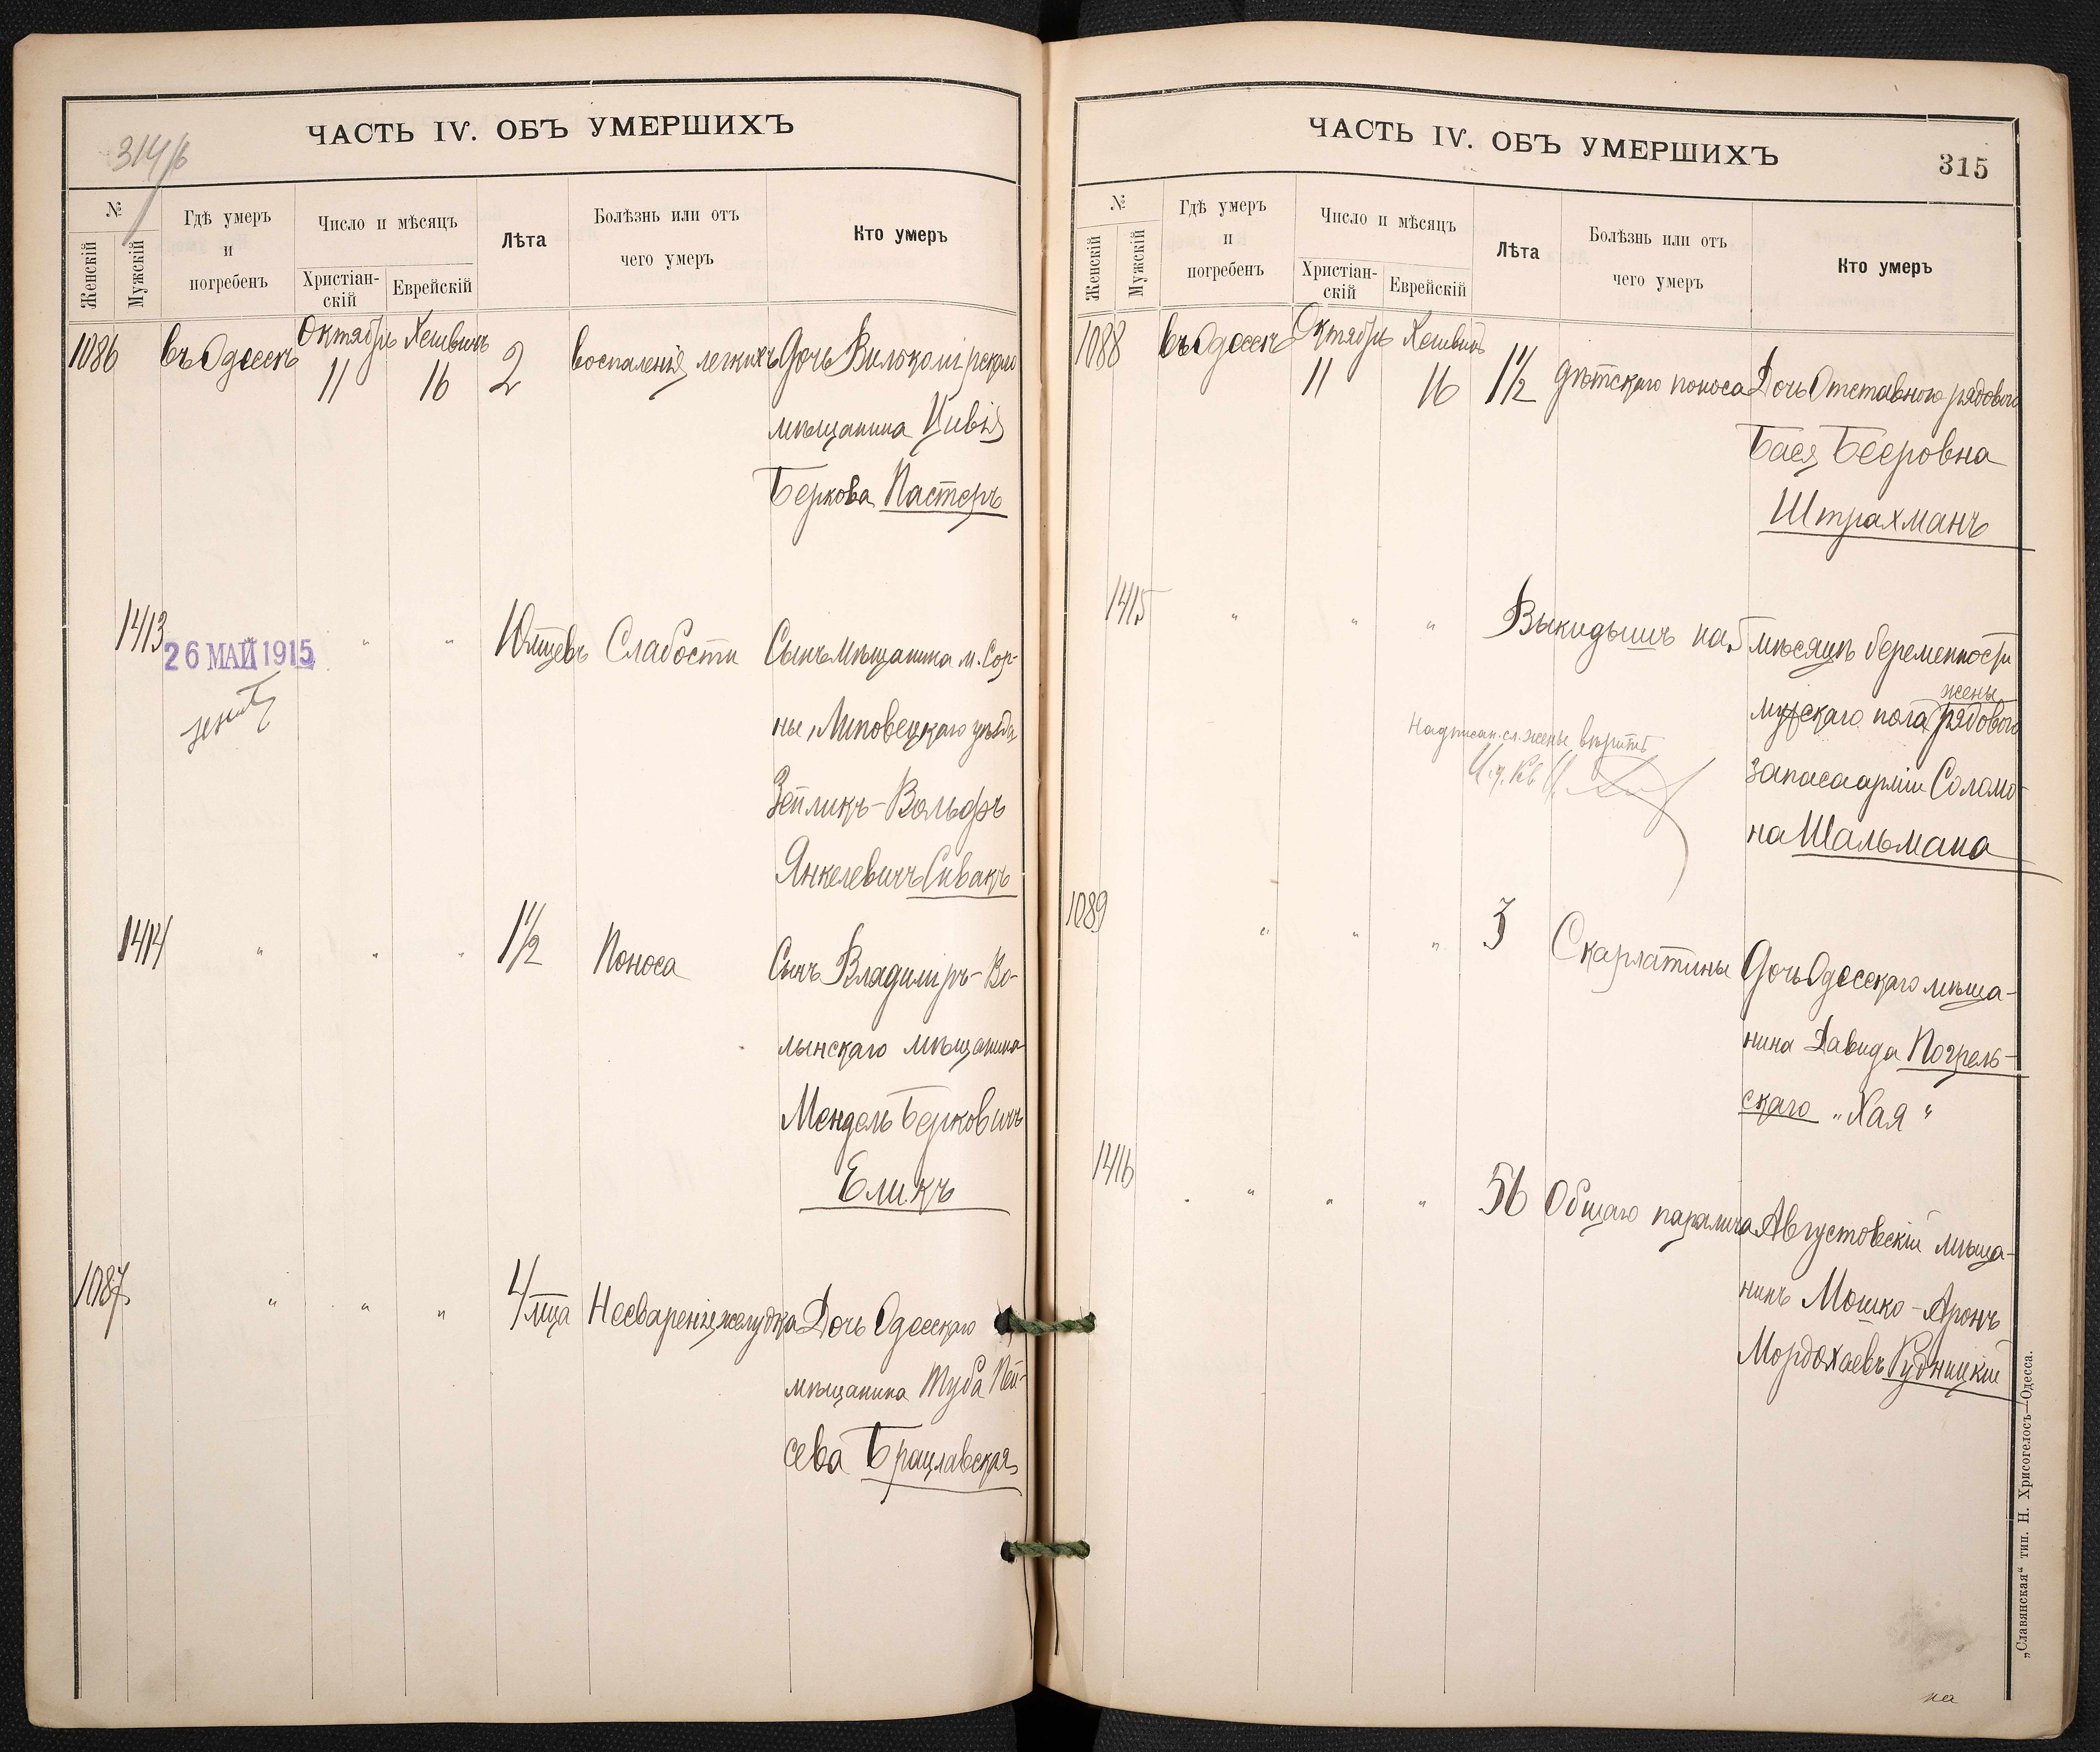 314/б
ЧАСТЬ IV. ОБЪ УМЕРШИХЪ
№
Женскій
Мужскій
Гдѣ умеръ
и
погребенъ
Число и мѣсяцъ
Христіан-
скій
Еврейскій
Лѣта
Болѣзнь или отъ
чего умеръ
Кто умеръ
1086 въ Одессѣ Октябрь 11 Хешвинъ 16 2 воспаленія легкихъ Дочь Вилькомірскаго
мѣщанина Цивія
Беркова Пастеръ
1413 " " 10 мѣсцевъ Слабости Сынъ мѣщанина м. Сор-
26 МАЙ 1915
ны, Липовецкаго уѣзда
Зейликъ-Вольфъ
Янкелевичъ Сивакъ
1414 " " " 1 1/2 Поноса Сынъ Владиміръ-Во-
лынскаго мѣщанина
Мендель Берковичъ
Еликъ
1087 " " " 4 мца Несваренія желудка Дочь Одесскаго
мѣщанина Туба Пей-
сева Брацлавская
ЧАСТЬ IV. ОБЪ УМЕРШИХЪ
315
№
Женскій
Мужскій
Гдѣ умеръ
и
погребенъ
Число и мѣсяцъ
Христіан-
скій
Еврейскій
Лѣта
Болѣзнь или отъ
чего умеръ
Кто умеръ
1088 въ Одессѣ Октябрь 11 Хешвинъ 16 1 1/2 дѣтскаго поноса Дочь Отставного рядового
Бася Бееровна
Штрахманъ
1415 " " " Выкидышъ на 5 мѣсяцѣ беременности
жены
мужскаго пола рядового
Надписан. сл. жены вѣрить
запаса арміи Соломо-
на Шальмана
1089 " " " 3 Скарлатины Дочь Одесскаго мѣща-
нина Давида Погрель-
скаго „Хая“
1416 " " " 56 Общаго паралича Августовскій мѣща-
нинъ Мошко-Аронъ
Мордохаевъ Рудницкій
на
„Славянская“ тип. Н. Хрисогелосъ—Одесса.